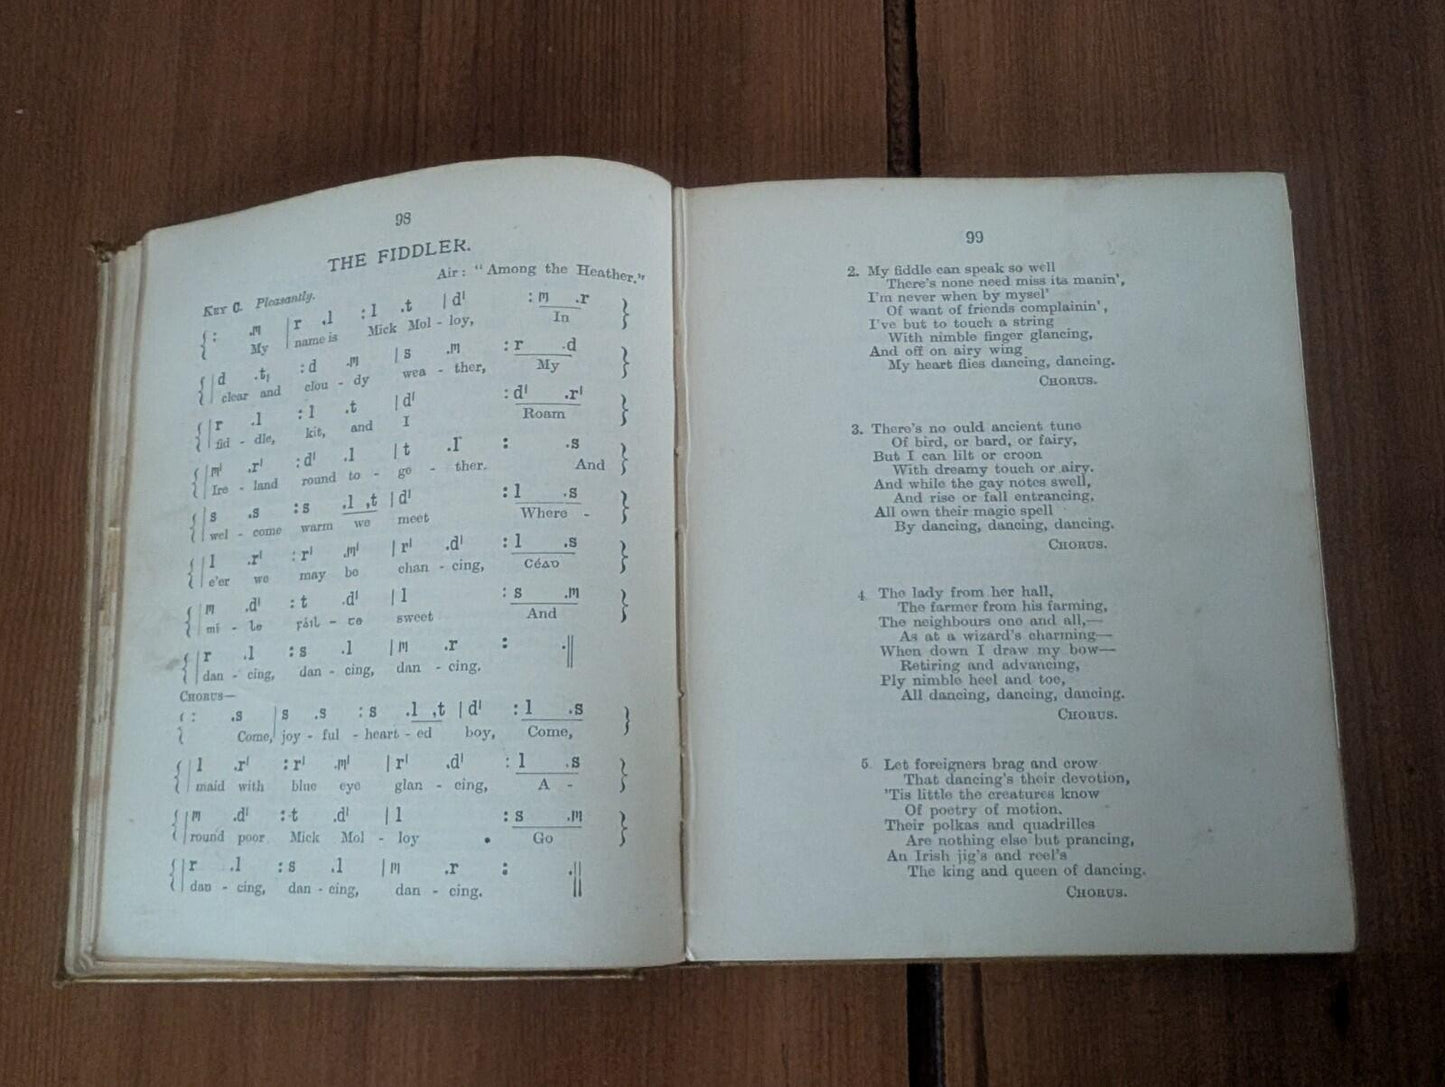 98
THE FIDDLER.
Air: "Among the Heather."
KEY C. Pleasantly.
{ : .m | r .l : l .t | d' : m .r }
My name is Mick Mol - loy, In
{ | d .t, : d .m | s .m : r .d }
clear and clou - dy wea - ther, My
{ | r .l : l .t | d' : d' .r' }
fid - dle, kit, and I Roam
{ | m' .r' : d' .l | t .l : .s }
Ire - land round to - ge - ther. And
{ | s .s : s .l ,t | d' : l .s }
wel - come warm we meet Where -
{ | l .r' : r' .m' | r' .d' : l .s }
e'er we may be chan - cing, Céad
{ | m .d' : t .d' | l : s .m }
mí - le ꝼáil - te sweet And
{ | r .l : s .l | m .r : . ||
dan - cing, dan - cing, dan - cing.
CHORUS—
{ : .s | s .s : s .l ,t | d' : l .s }
Come, joy - ful - heart - ed boy, Come,
{ | l .r' : r' .m' | r' .d' : l .s }
maid with blue eye glan - cing, A -
{ | m .d' : t .d' | l : s .m }
round poor Mick Mol - loy . Go
{ | r .l : s .l | m .r : . ||
dan - cing, dan - cing, dan - cing.
99
2. My fiddle can speak so well
There's none need miss its manin',
I'm never when by mysel'
Of want of friends complainin',
I've but to touch a string
With nimble finger glancing,
And off on airy wing
My heart flies dancing, dancing.
CHORUS.
3. There's no ould ancient tune
Of bird, or bard, or fairy,
But I can lilt or croon
With dreamy touch or airy.
And while the gay notes swell,
And rise or fall entrancing,
All own their magic spell
By dancing, dancing, dancing.
CHORUS.
4 The lady from her hall,
The farmer from his farming,
The neighbours one and all,—
As at a wizard's charming—
When down I draw my bow—
Retiring and advancing,
Ply nimble heel and toe,
All dancing, dancing, dancing.
CHORUS.
5 Let foreigners brag and crow
That dancing's their devotion,
'Tis little the creatures know
Of poetry of motion.
Their polkas and quadrilles
Are nothing else but prancing,
An Irish jig's and reel's
The king and queen of dancing.
CHORUS.